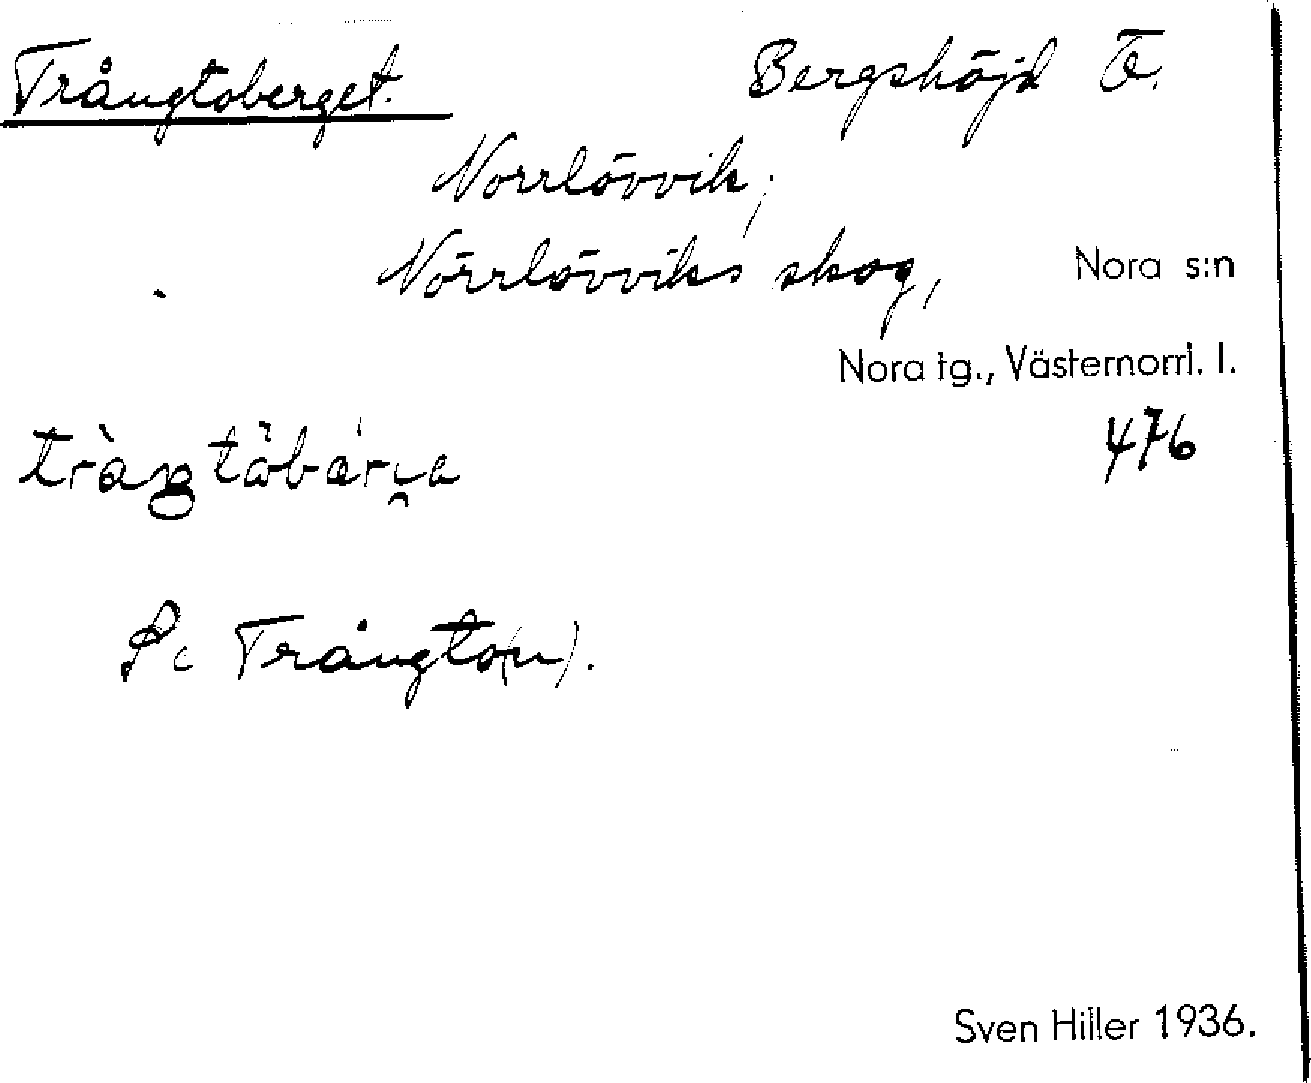 Trångtoberget. Bergshöjd
Norrlövvik,
Norrlövviks skog, Nora s:n
Nora tg., Västernorrl. l.
476
Se Trångto(n).
Sven Hiller 1936.